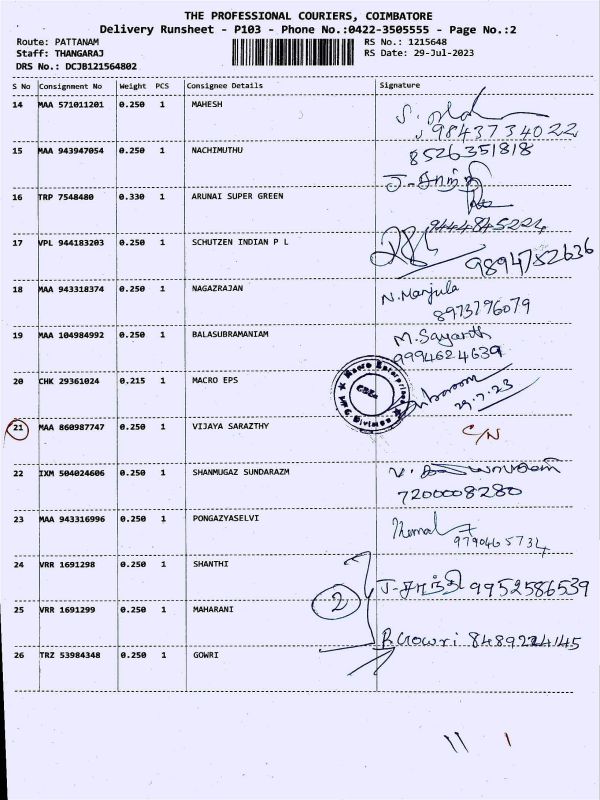 THE PROFESSIONAL COURIERS, COIMBATORE
Delivery Runsheet - P103 - Phone No.:0422-3505555 - Page No.:2
Route: PATTANAM RS No.: 1215648
Staff: THANGARAJ RS Date: 29-Jul-2023
DRS No.: DCJB121564802
S No Consignment No Weight PCS Consignee Details Signature
14 MAA 571011201 0.250 1 MAHESH
9843734022
15 MAA 943947054 0.250 1 NACHIMUTHU 8526351818
16 TRP 7548480 0.330 1 ARUNAI SUPER GREEN
9444845224
17 VPL 944183203 0.250 1 SCHUTZEN INDIAN P L
9894752636
18 MAA 943318374 0.250 1 NAGAZRAJAN N. Manjula
8973796079
19 MAA 104984992 0.250 1 BALASUBRAMANIAM M. Sayanth
9994624639
20 CHK 29361024 0.215 1 MACRO EPS
Macro Enterprises
29.7.23
21 MAA 860987747 0.250 1 VIJAYA SARAZTHY C/N
22 IXM 504024606 0.250 1 SHANMUGAZ SUNDARAZM
7200008280
23 MAA 943316996 0.250 1 PONGAZYASELVI
9790465734
24 VRR 1691298 0.250 1 SHANTHI
J-சாந்தி 9952586539
25 VRR 1691299 0.250 1 MAHARANI
2
R Gowri 8489224145
26 TRZ 53984348 0.250 1 GOWRI